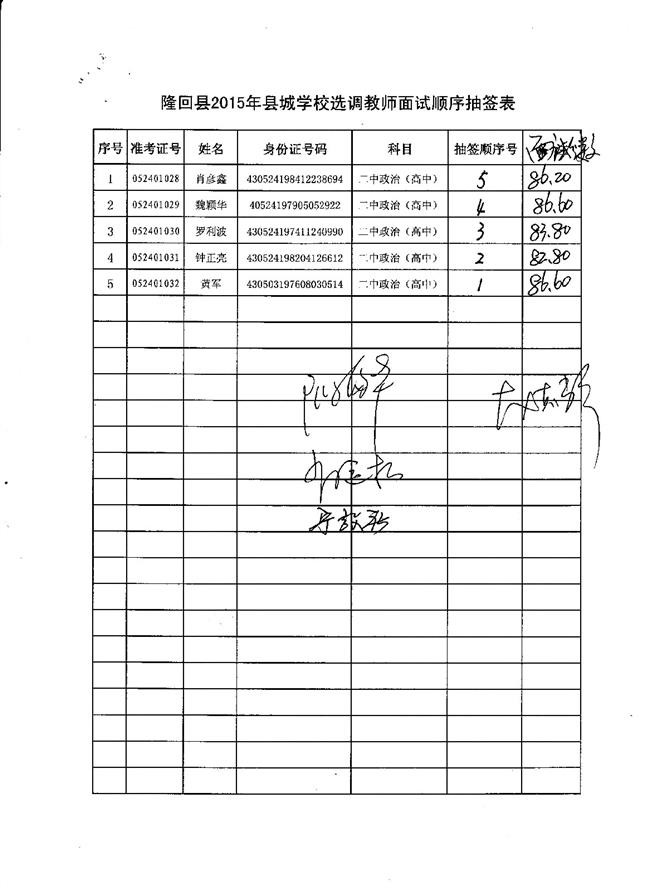 隆回县2015年县城学校选调教师面试顺序抽签表
序号 准考证号 姓名 身份证号码 科目 抽签顺序号 面试分数
1 052401028 肖彦鑫 430524198412238694 二中政治（高中） 5 86.20
2 052401029 魏颖华 40524197905052922 二中政治（高中） 4 86.60
3 052401030 罗利波 430524197411240990 二中政治（高中） 3 83.80
4 052401031 钟正亮 430524198204126612 二中政治（高中） 2 82.80
5 052401032 黄军 430503197608030514 二中政治（高中） 1 86.60